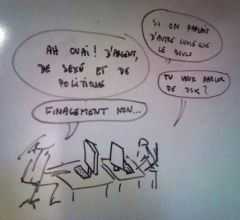 SI ON PARLAIT
D'AUTRE CHOSE QUE
LE BOULO
AH OUAI! D'ARGENT,
DE SEXE ET DE
POLITIQUE
TU VEUX PARLER
DE DSK?
FINALEMENT NON...